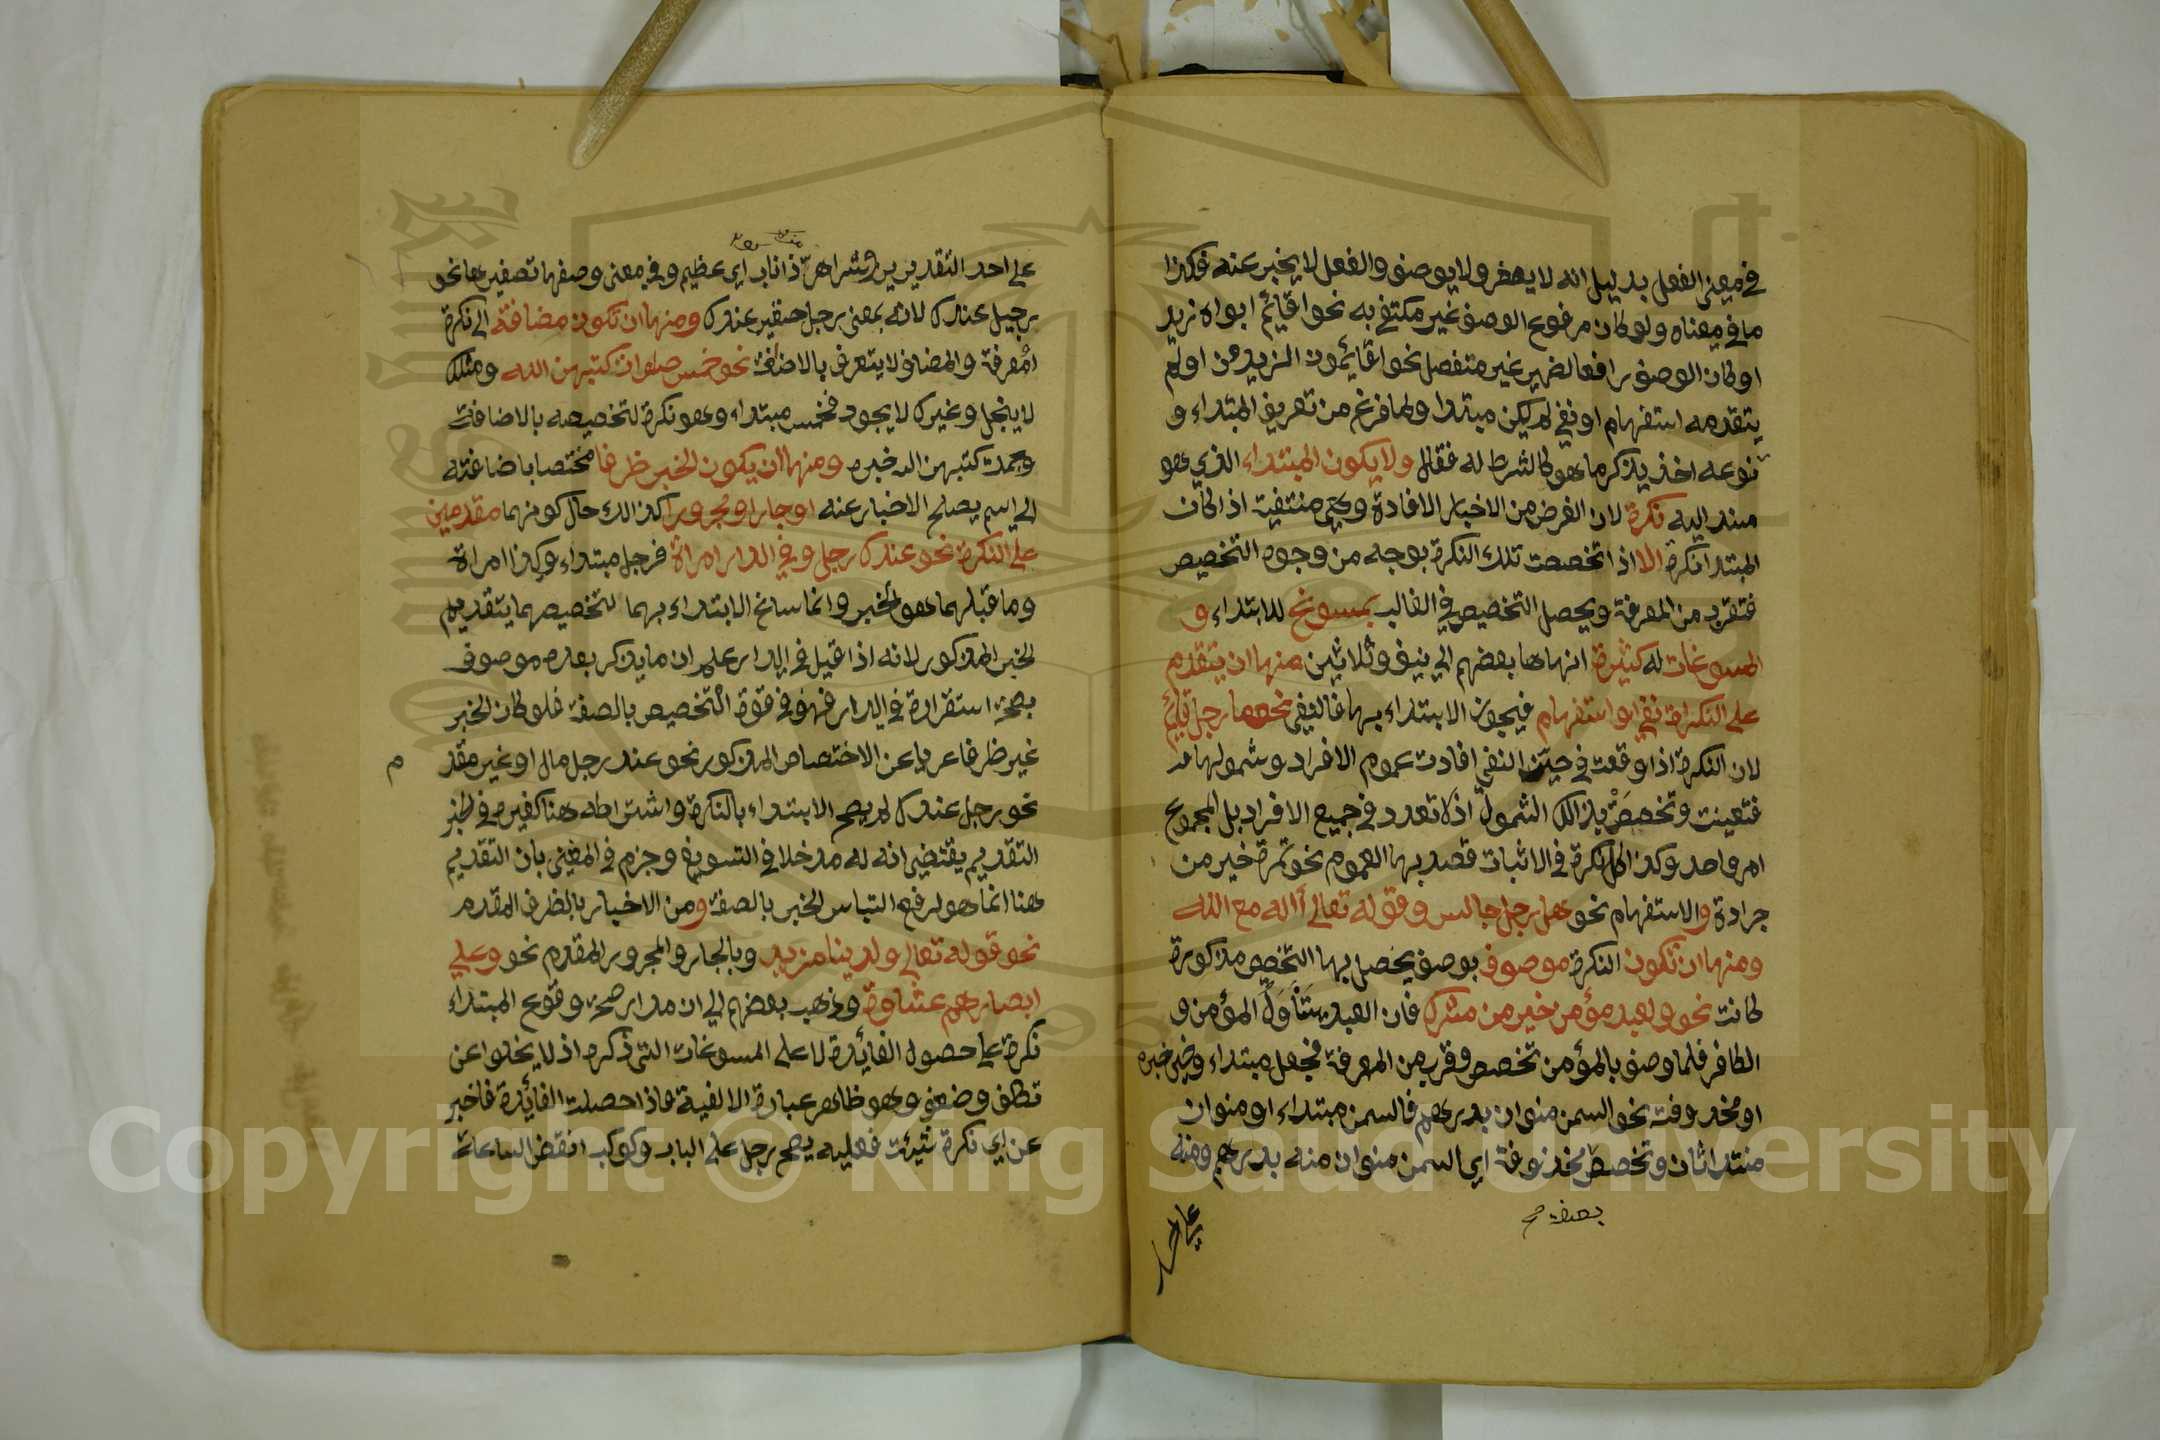 في معنى الفعل بدليل انه لا يصغر ولا يوصف والفعل لا يخبر عنه فكذا
ما في معناه ولو كان مرفوع الوصف غير مكتفى به نحو اقائم ابواه زيد
او كان الوصف رافعا لضمير غير منفصل نحو اقائمون الزيدون اولم
يتقدمه استفهام او نفي لم يكن مبتدا ولما فرغ من تعريف المبتداء و
نوعه اخذ يذكر ما هو كالشرط له فقال ولا يكون المبتداء الذي هو
مسند اليه نكرة لان الغرض من الاخبار الافادة وهي منتفية اذا كان
المبتدا نكرة الا اذا تخصصت تلك النكرة بوجه من وجوه التخصيص
فتقرب من المعرفة ويحصل التخصيص في الغالب بمسوغ للابتداء و
المسوغات له كثيرة انهاها بعضهم الي نيف وثلاثين منها ان يتقدم
على النكرة نفي او استفهام فيجوز الابتداء بها فالنفي نحو ما رجل قائم
لان النكرة اذا وقعت في حيز النفي افادت عموم الافراد وشمولها
فتعينت وتخصصت بذالك الشمول اذ لا تعدد في جميع الافراد بل المجموع
امر واحد وكذا كل نكرة في الاثبات قصد بها العموم نحو تمرة خير من
جرادة والاستفهام نحو هل رجل جالس وقوله تعالى أاله مع الله
ومنها ان تكون النكرة موصوف بوصف يحصل بها التخصص مذكورة
كانت نحو ولعبد مؤمن خير من مشرك فان العبد يتناول المؤمن و
الكافر فلما وصف بالمؤمن تخصص وقرب من المعرفة فجعل مبتداء وخير خبره
او محذوفة نحو السمن منوان بدرهم فالسمن مبتداء او منوان
مبتدا ثان وتخصص محذوفة اي السمن منوان منه بدرهم ومنه
بصفة صح
على احد
على احد التقديرين وشر اهر ذا ناب اي عظيم وفي معنى وصفها تصغيرها نحو
رجيل عندك لانه بمعنى رجل حقير عندك ومنها ان تكون مضافة الى نكرة
او معرفة والمضاف لا يتعرف بالاضافة نحو خمس صلوات كتبهن الله ومثلك
لا يبخل وغيرك لا يجود فخمس مبتداء وهو نكرة لتخصيصه بالاضافة
وجملة كتبهن الله خبره ومنها ان يكون الخبر ظرفا مختصا باضافته
الي اسم يصلح الاخبار عنه او جارا ومجرورا كذالك حال كونهما مقدمين
على النكرة نحو عندك رجل وفي الدار امراة فرجل مبتداء وكذا امراة
وما قبلهما هو الخبر وانما ساغ الابتداء بهما لتخصيصهما بتقديم
الخبر المذكور لانه اذا قيل في الدار علم ان ما يذكر بعده موصوف
بصحة استقراره في الدار فهو في قوة التخصيص بالصفة فلو كان الخبر
غير ظرفا عريا عن الاختصاص المذكور نحو عند رجل مال او غير مقد م
نحو رجل عندك لم يصح الابتداء بالنكرة واشتراطه هنا كغيره في الخبر
التقديم يقتضي انه له مدخلا في التسويغ وجزم في المغني بان التقديم
هنا انما هو لرفع التباس الخبر بالصفة ومن الاخبار بالظرف المقدم
نحو قوله تعالى ولدينا مزيد وبالجار والمجرور المقدم نحو وعلى
ابصارهم غشاوة وذهب بعضهم الي ان مدار صحة وقوع المبتداء
نكرة على حصول الفائدة لا على المسوغات التي ذكره اذ لا يخلوا عن
تكلف وضعف وهو ظاهر عبارة الالفية فاذا حصلت الفائدة فاخبر
عن اي نكرة شيئت فعليه يصح رجل على الباب وكوكب انقض الساعة
Copyright © King Saud University